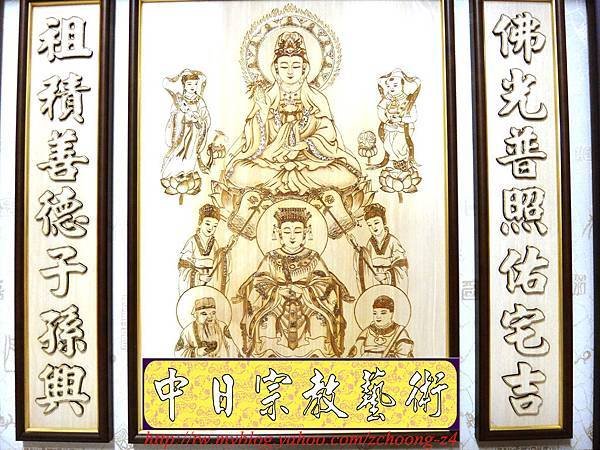 佛光普照佑宅吉
祖積善德子孫興
中日宗教藝術
http://tw.myblog.yahoo.com/zchoong-z4